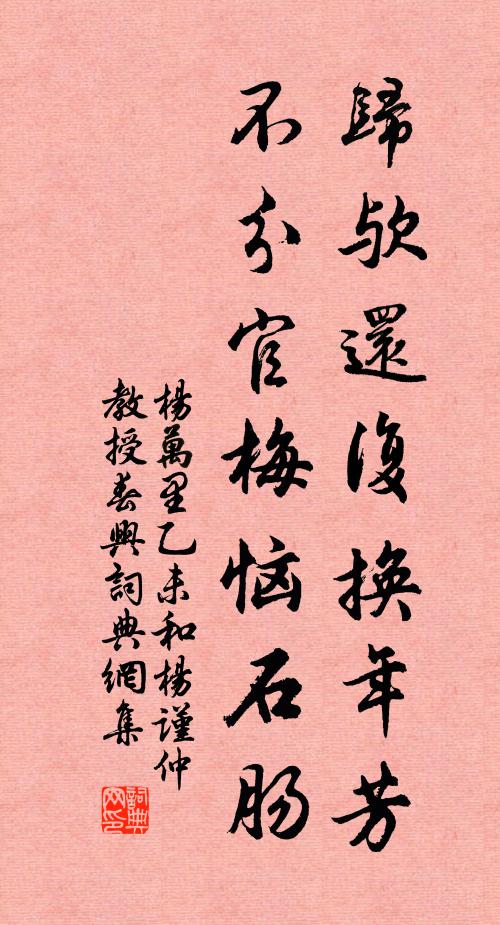 歸欤還復換年芳
不分官梅恼石肠
楊萬里乙未和楊謹仲
教授春興詞典網集
詞典
网印